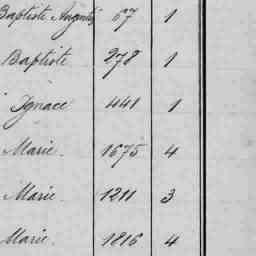 Baptiste 67 1
Baptiste 278 1
Ignace 441 1
Marie. 1675 4
Marie. 1211 3
Marie. 1816 4